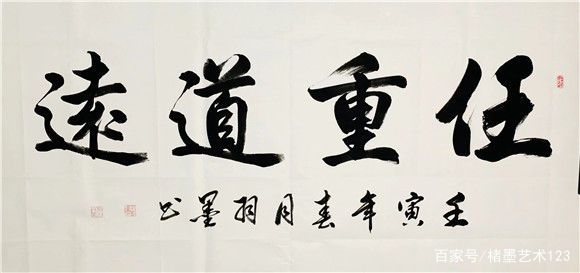 任重道遠
壬寅年春月羽墨书
百家号/楮墨艺术123